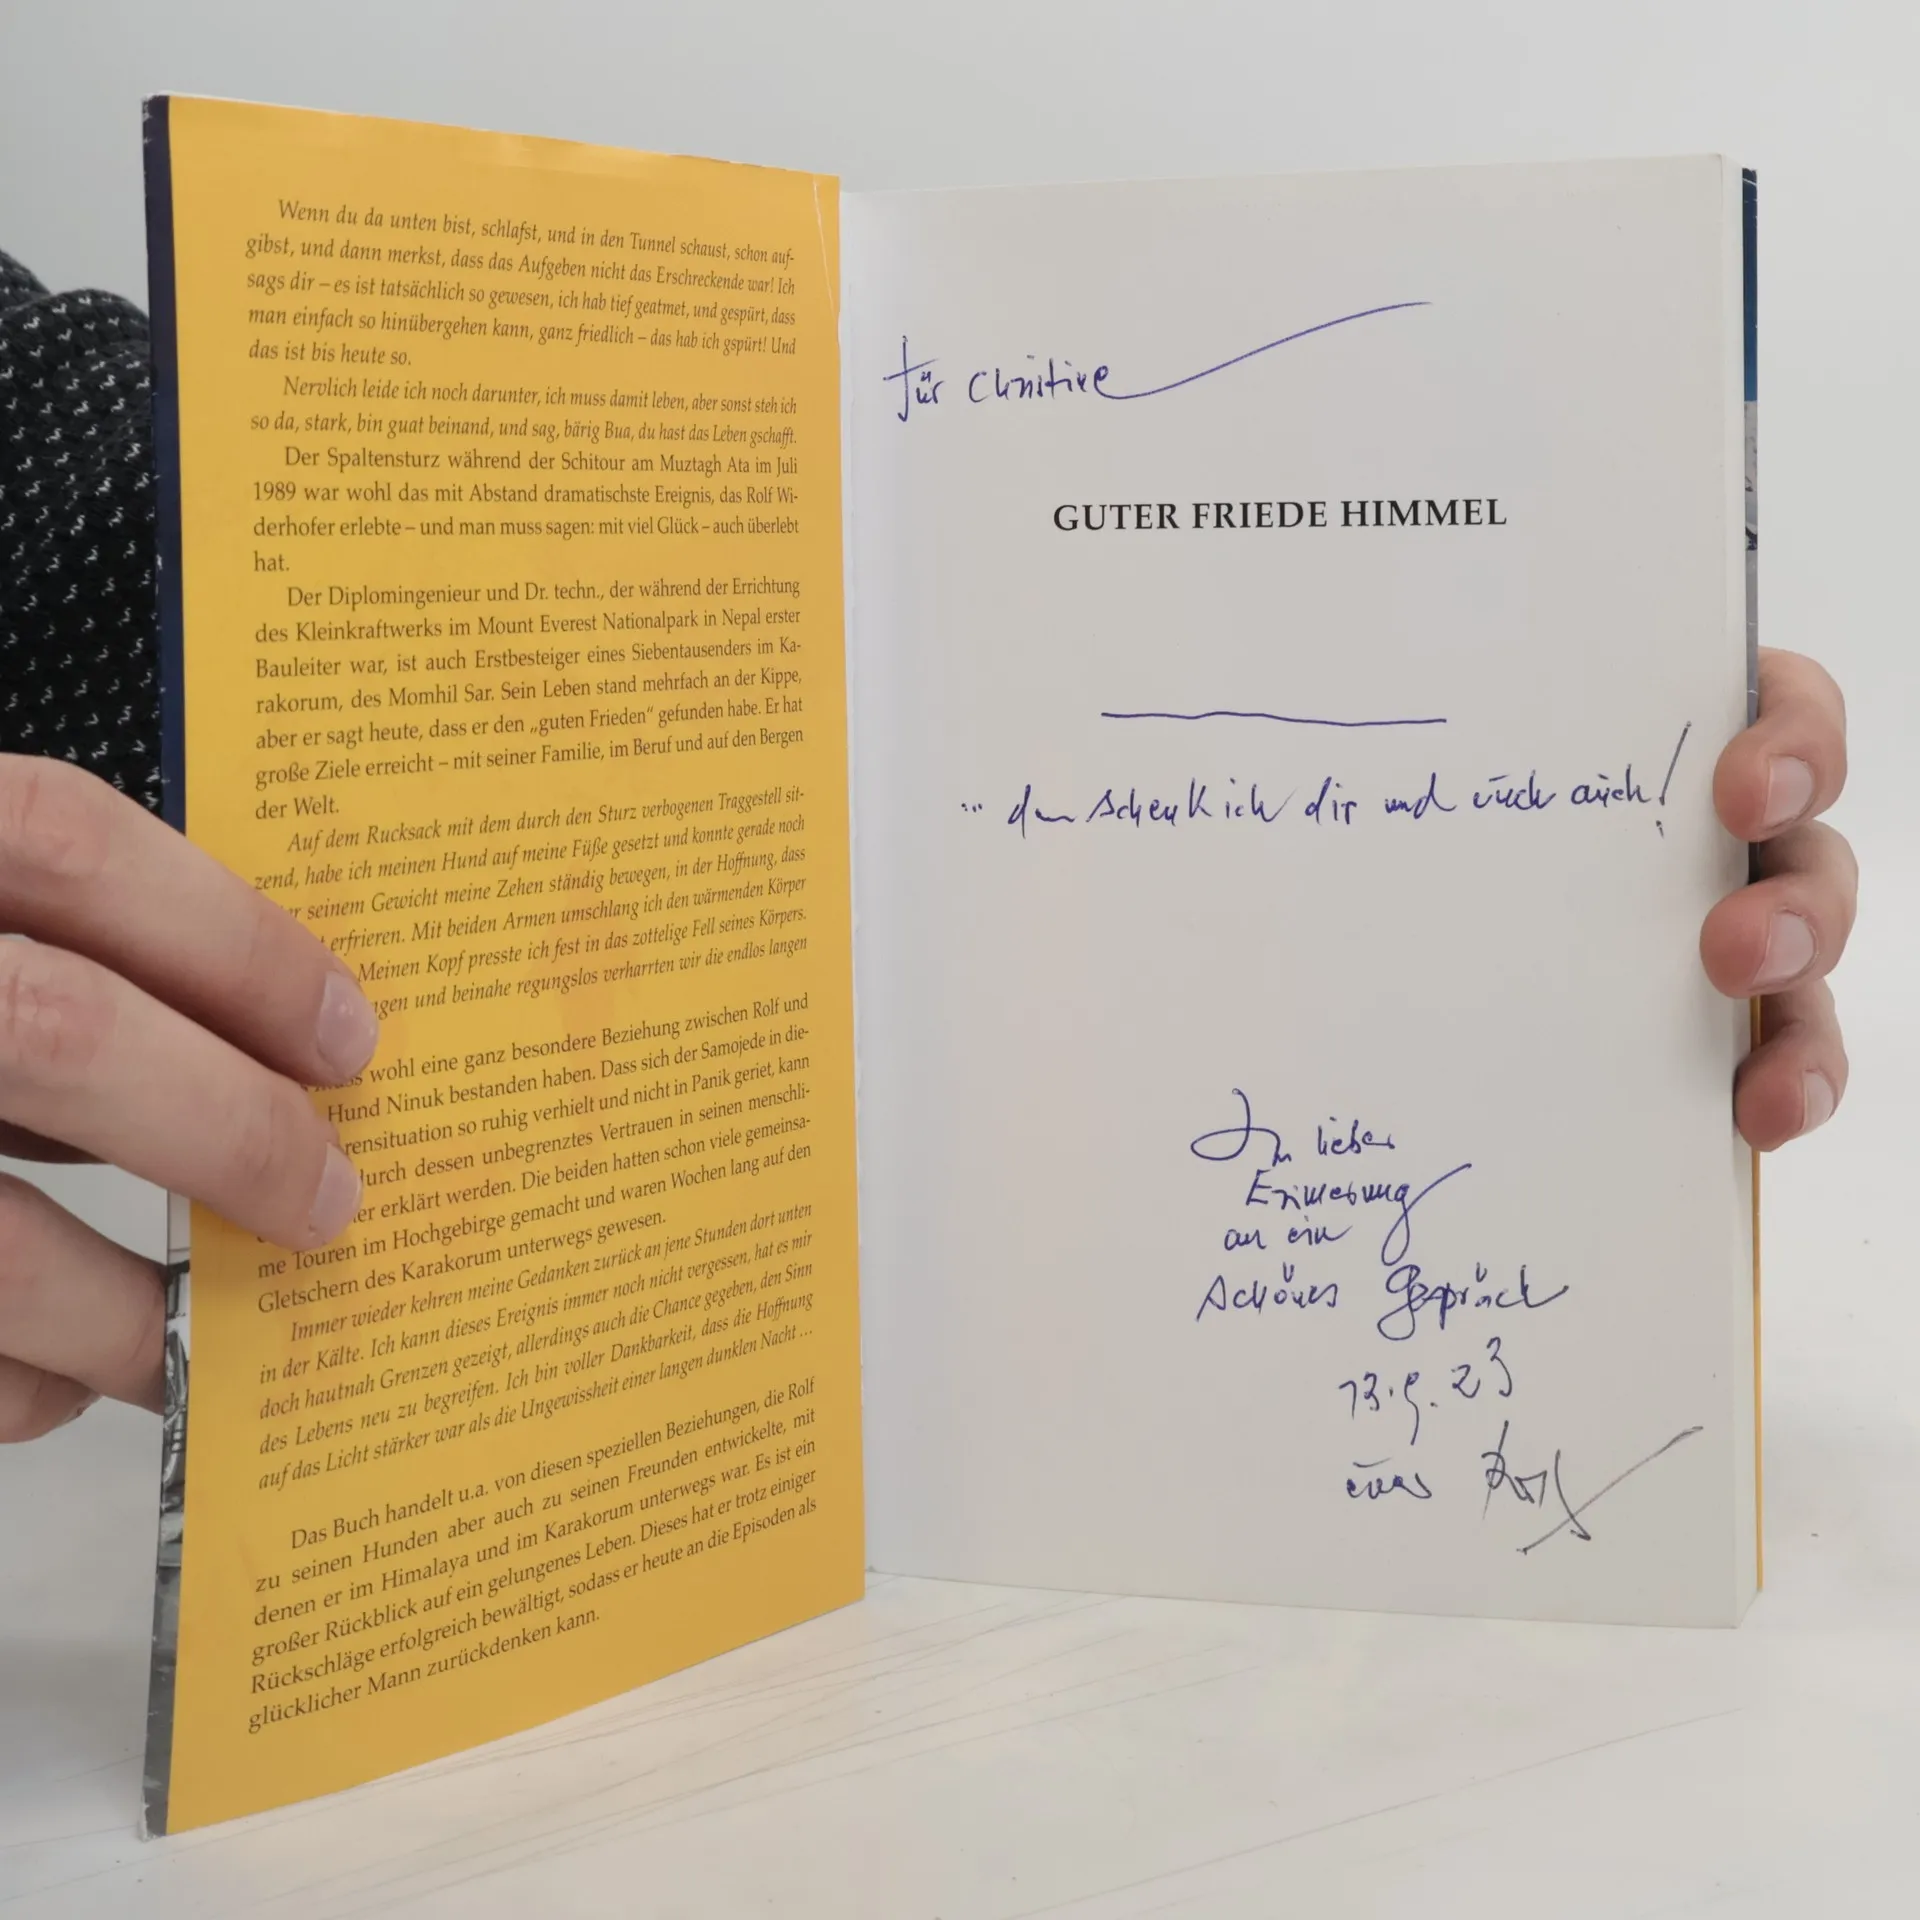 Wenn du da unten bist, schlafst, und in den Tunnel schaust, schon auf-
gibst, und dann merkst, dass das Aufgeben nicht das Erschreckende war! Ich
sags dir – es ist tatsächlich so gewesen, ich hab tief geatmet, und gespürt, dass
man einfach so hinübergehen kann, ganz friedlich – das hab ich gspürt! Und
das ist bis heute so.
Nervlich leide ich noch darunter, ich muss damit leben, aber sonst steh ich
so da, stark, bin guat beinand, und sag, bärig Bua, du hast das Leben gschafft.
Der Spaltensturz während der Schitour am Muztagh Ata im Juli
1989 war wohl das mit Abstand dramatischste Ereignis, das Rolf Wi-
derhofer erlebte – und man muss sagen: mit viel Glück – auch überlebt
hat.
Der Diplomingenieur und Dr. techn., der während der Errichtung
des Kleinkraftwerks im Mount Everest Nationalpark in Nepal erster
Bauleiter war, ist auch Erstbesteiger eines Siebentausenders im Ka-
rakorum, des Momhil Sar. Sein Leben stand mehrfach an der Kippe,
aber er sagt heute, dass er den „guten Frieden“ gefunden habe. Er hat
große Ziele erreicht – mit seiner Familie, im Beruf und auf den Bergen
der Welt.
Auf dem Rucksack mit dem durch den Sturz verbogenen Traggestell sit-
zend, habe ich meinen Hund auf meine Füße gesetzt und konnte gerade noch
seinem Gewicht meine Zehen ständig bewegen, in der Hoffnung, dass
erfrieren. Mit beiden Armen umschlang ich den wärmenden Körper
Meinen Kopf presste ich fest in das zottelige Fell seines Körpers.
und beinahe regungslos verharrten wir die endlos langen
wohl eine ganz besondere Beziehung zwischen Rolf und
Hund Ninuk bestanden haben. Dass sich der Samojede in die-
rensituation so ruhig verhielt und nicht in Panik geriet, kann
durch dessen unbegrenztes Vertrauen in seinen menschli-
er erklärt werden. Die beiden hatten schon viele gemeinsa-
me Touren im Hochgebirge gemacht und waren Wochen lang auf den
Gletschern des Karakorum unterwegs gewesen.
Immer wieder kehren meine Gedanken zurück an jene Stunden dort unten
in der Kälte. Ich kann dieses Ereignis immer noch nicht vergessen, hat es mir
doch hautnah Grenzen gezeigt, allerdings auch die Chance gegeben, den Sinn
des Lebens neu zu begreifen. Ich bin voller Dankbarkeit, dass die Hoffnung
auf das Licht stärker war als die Ungewissheit einer langen dunklen Nacht ...
Das Buch handelt u.a. von diesen speziellen Beziehungen, die Rolf
zu seinen Hunden aber auch zu seinen Freunden entwickelte, mit
denen er im Himalaya und im Karakorum unterwegs war. Es ist ein
großer Rückblick auf ein gelungenes Leben. Dieses hat er trotz einiger
Rückschläge erfolgreich bewältigt, sodass er heute an die Episoden als
glücklicher Mann zurückdenken kann.
für Christine
GUTER FRIEDE HIMMEL
... den schenk ich dir und euch auch!
In lieber
Erinnerung
an ein
schönes Gespräch
13.9.23
euer Rolf